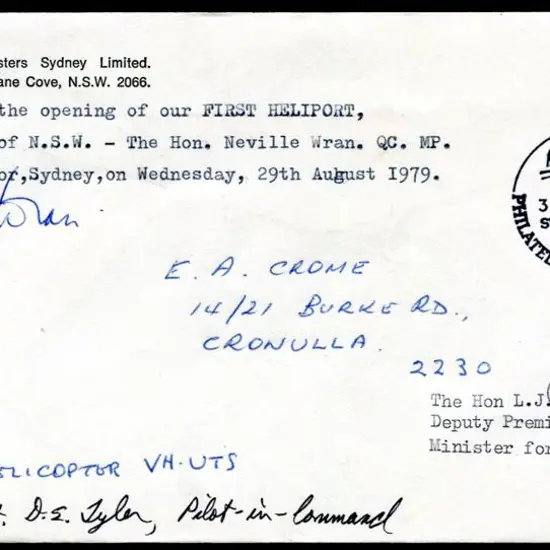 sters Sydney Limited.
ane Cove, N.S.W. 2066.
the opening of our FIRST HELIPORT,
of N.S.W. - The Hon. Neville Wran. QC. MP.
or,Sydney,on Wednesday, 29th August 1979.
Wran
3
S
PHILATEL
E. A. CROME
14/21 BURKE RD.,
CRONULLA.
2230
The Hon L.J.
Deputy Premi
Minister for
ELICOPTER VH-UTS
D.E. Tyler, Pilot-in-Command